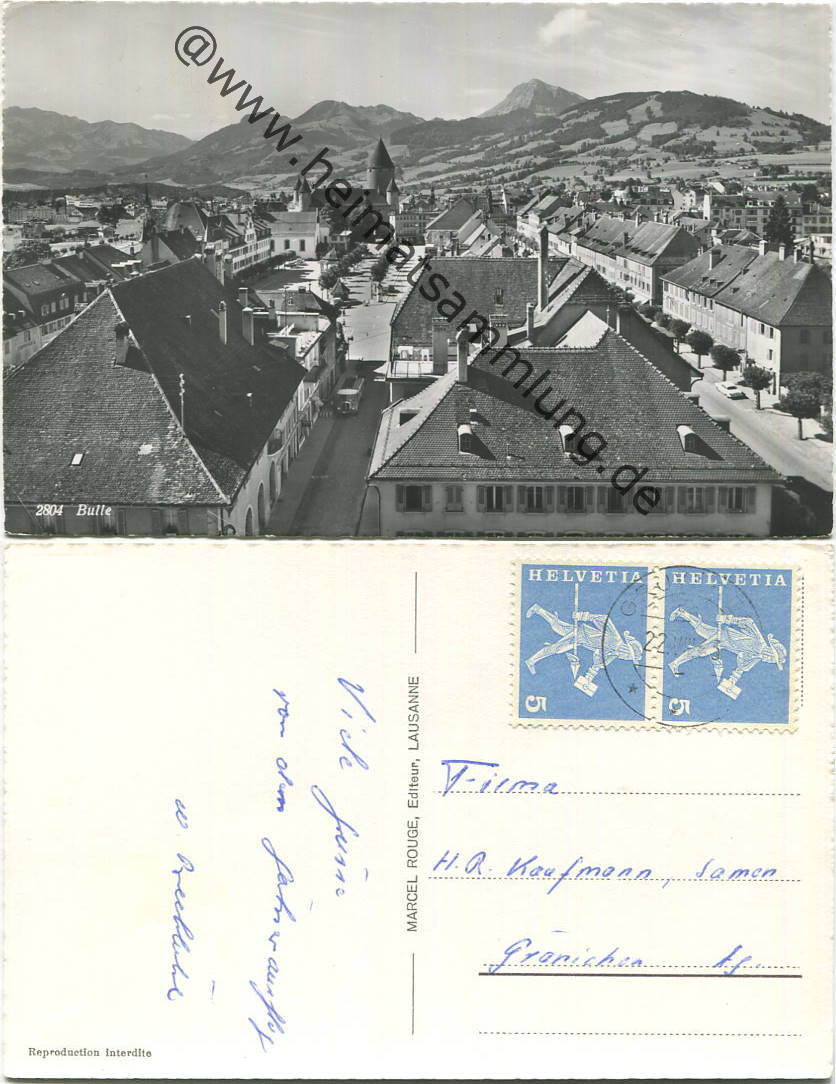 @www.heimatsammlung.de
2804 Bulle
HELVETIA
5
HELVETIA
5
22.
MARCEL ROUGE, Editeur, LAUSANNE
Viele Grüsse
von dem
Firma
H.R. Kaufmann, Samen
Gränichen Ag.
Reproduction interdite